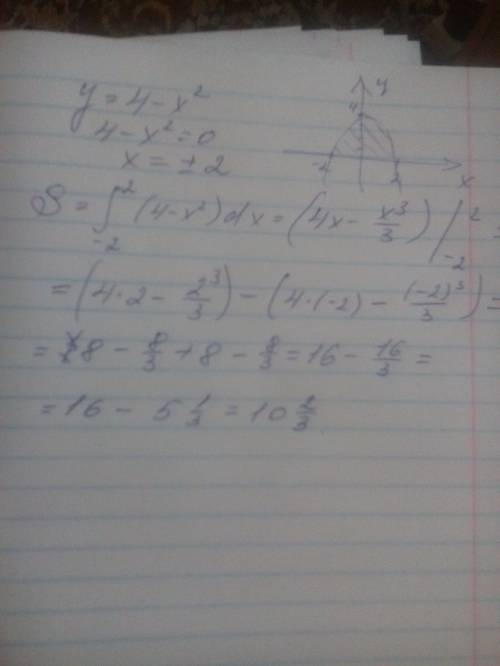 y = 4 - x²
4 - x² = 0
x = ± 2
y
4
-2
2
x
S = ∫₋₂² (4-x²)dx = (4x - x³/3) |₋₂² =
= (4·2 - 2³/3) - (4·(-2) - (-2)³/3) =
= 8 - 8/3 + 8 - 8/3 = 16 - 16/3 =
= 16 - 5 1/3 = 10 2/3